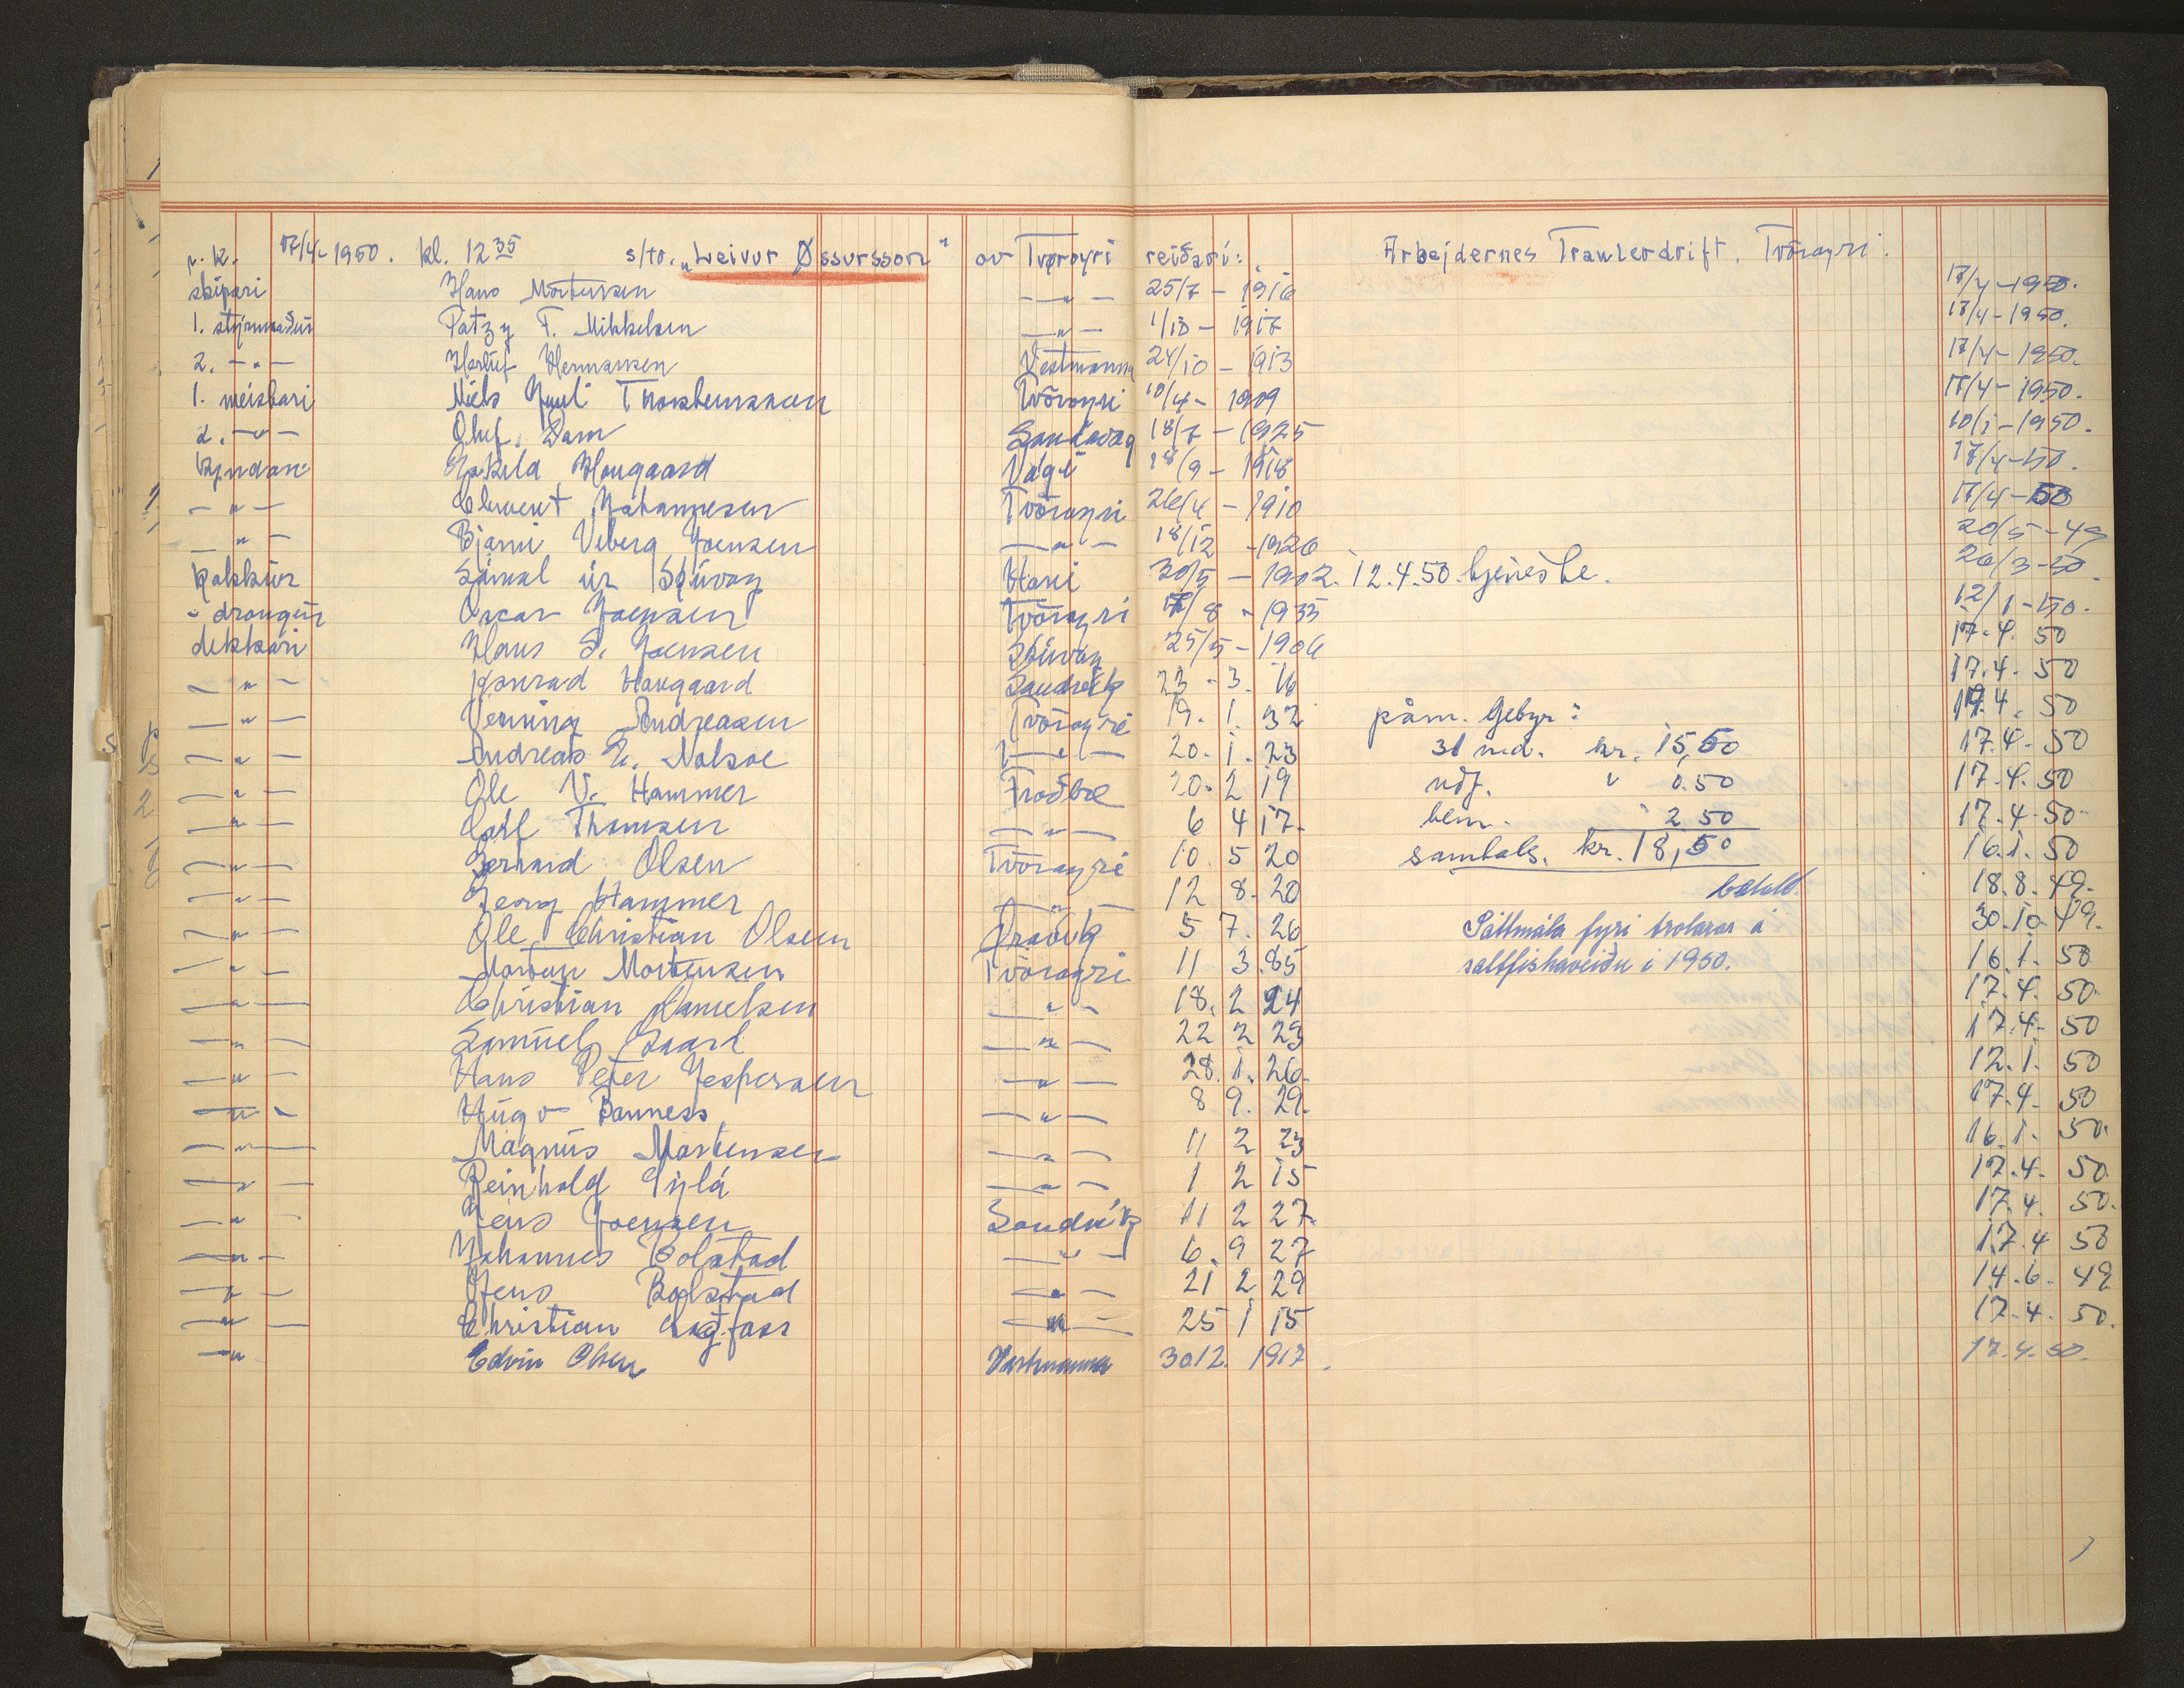 p.k. 17/4-1950. kl. 12 35 s/tr. „Leivur Øssursson“ av Tvøroyri reiðari: Arbejdernes Trawlerdrift, Tvöroyri.
skipari Hans Mortensen —〃— 25/7 - 1916 17/4-1950.
1. stýrimaður Patzy F. Mikkelsen —〃— 1/10 - 1917 17/4-1950.
2. —〃— Herluf Hermansen Vestmanna 24/10 - 1913 17/4-1950.
1. meistari Niels Juul Thorsteinsson Tvöroyri 10/4 - 1909 17/4-1950.
2. —〃— Oluf Dam Sandavág 18/7 - 1925 10/1-1950.
kyndari Eskild Hougaard Vági 28/9 - 1918 17/4-50.
—〃— Clement Johannesen Tvöroyri 26/4 - 1910 17/4-50
—〃— Bjarni Viberg Joensen —〃— 18/12 - 1926 20/5-49
kokkur Sámal úr Skúvoy Hovi 30/5 - 1902. 12.4.50. tjeneste. 26/3-50.
- drongur Oscar Joensen Tvöroyri 17/8 - 1933 12/1-50.
dekkari Hans S. Joensen Skúvoy 25/5 - 1906 17.4. 50
—〃— Konrad Hougaard Sandvík 23 - 3. 16 17.4. 50
—〃— Venning Andreasen Tvöroyri 19. 1. 32 påm. Gebyr: 17.4. 50
—〃— Andreas E. Nolsøe —〃— 20. 1. 23 31 md. kr. 15,50 17.4. 50
—〃— Ole V. Hammer Froðbøe 20. 2 19 udf. 〃 0.50 17.4. 50
—〃— Carl Thomsen —〃— 6 4 17. bem. 〃 2 50 17.4.50
—〃— Gerhard Olsen Tvöroyri 10. 5 20 samtals. kr. 18,50 16.1. 50
—〃— Georg Hammer —〃— 12 8. 20 betalt. 18.8. 49.
—〃— Ole Christian Olsen Øravík 5 7. 26 Sáttmála fyri trolarar á 30.10.49.
—〃— Morten Mortensen Tvöroyri 11 3.85 saltfiskaveiðu í 1950. 16.1. 50
—〃— Christian Danielsen —〃— 18. 2 24 17.4. 50.
—〃— Samuel Gaard —〃— 22 2 23 17.4. 50
—〃— Hans Peter Jespersen —〃— 28. 1. 26. 12.1. 50
—〃— Hugo Danness —〃— 8 9. 29. 17.4. 50
—〃— Magnus Mortensen —〃— 11 2 23 16.1. 50.
—〃— Reinhold —〃— 1 2 15 17.4. 50.
—〃— Jens Joensen Sandvík 11 2 27. 17.4. 50.
—〃— Johannes Bolstad —〃— 6. 9 27 17.4 50
—〃— Jens Bolstad —〃— 21 2 29 14.6. 49
—〃— Christian —〃— 25 1 15 17.4. 50.
—〃 Edvin Olsen Vestmanna 30.12. 1917. 17.4.50.